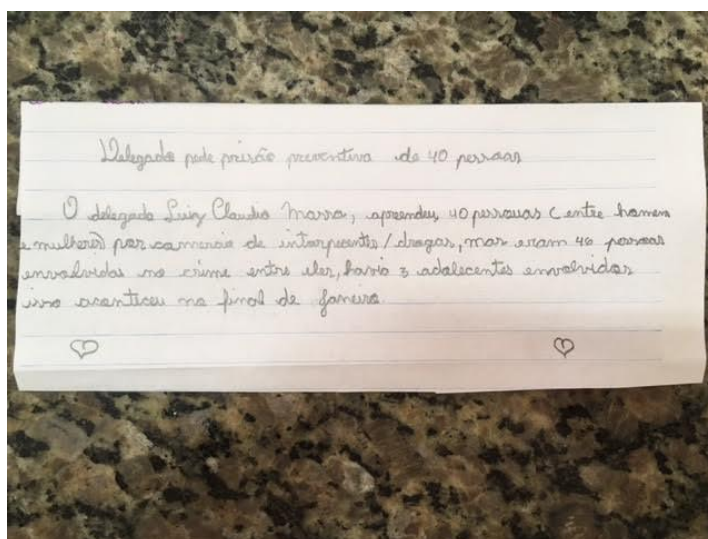 Delegado pede prisão preventiva de 40 pessoas
O delegado Luiz Claudio Marra, apreendeu 40 pessouas (entre homem
e mulheres) por comercio de intorpecentes/drogas, mas eram 46 pessoas
envolvidas no crime entre eles, havia 3 adolecentes envolvidos
isso aconteceu no final de Janeiro.